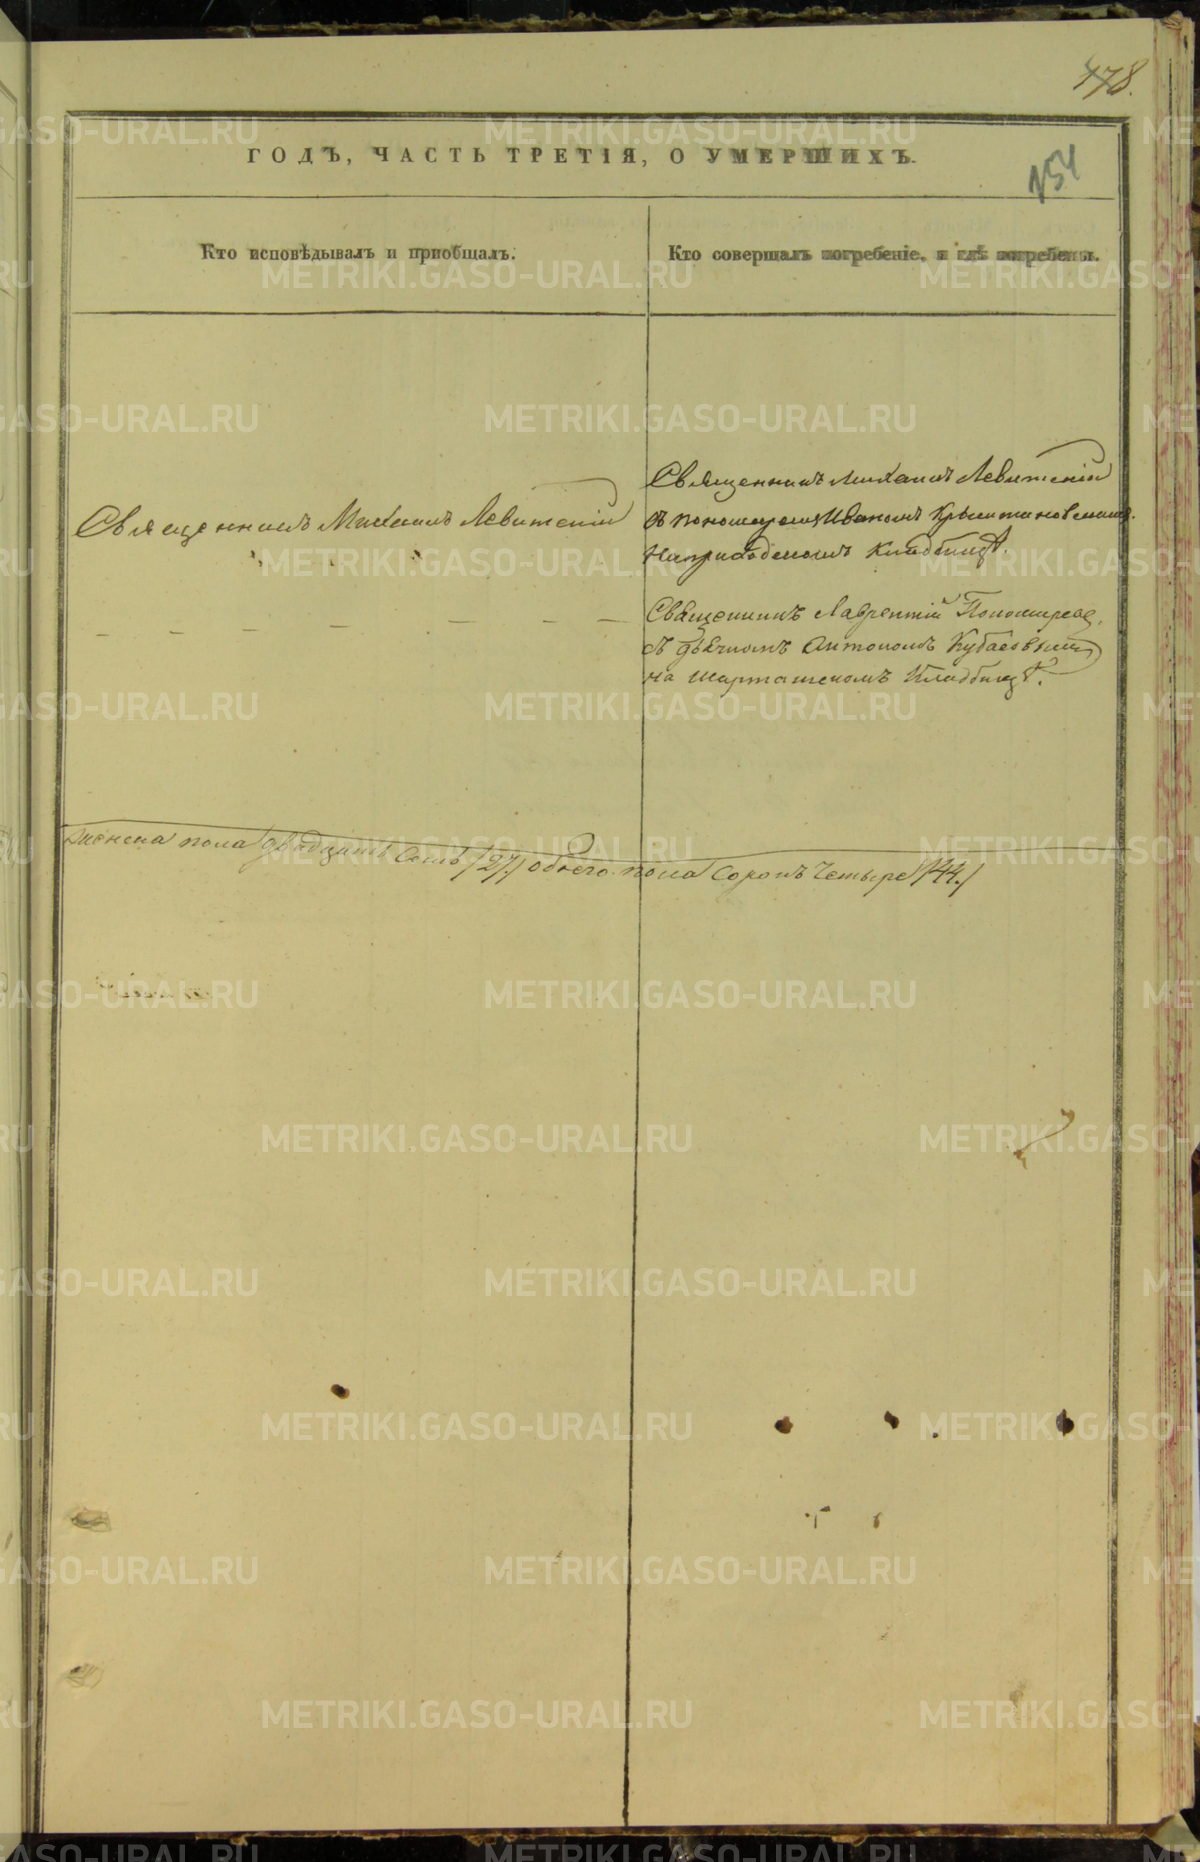 478.
ГОДЪ, ЧАСТЬ ТРЕТІЯ, О УМЕРШИХЪ.
154
Кто исповѣдывалъ и пріобщалъ.
Кто совершалъ погребеніе, и гдѣ погребены.
Священникъ Михаилъ Левитскій
Священникъ Михаилъ Левитскій
съ пономаремъ Иваномъ
На приходскомъ кладбищѣ.
Священникъ Лаврентій Пономаревъ,
съ дьячкомъ Антономъ
на шарташскомъ кладбищѣ.
женска пола двадцать семь /27./ обоего пола сорокъ четыре /44./
METRIKI.GASO-URAL.RU